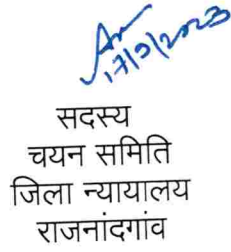 17/2023
सदस्य
चयन समिति
जिला न्यायालय
राजनांदगांव